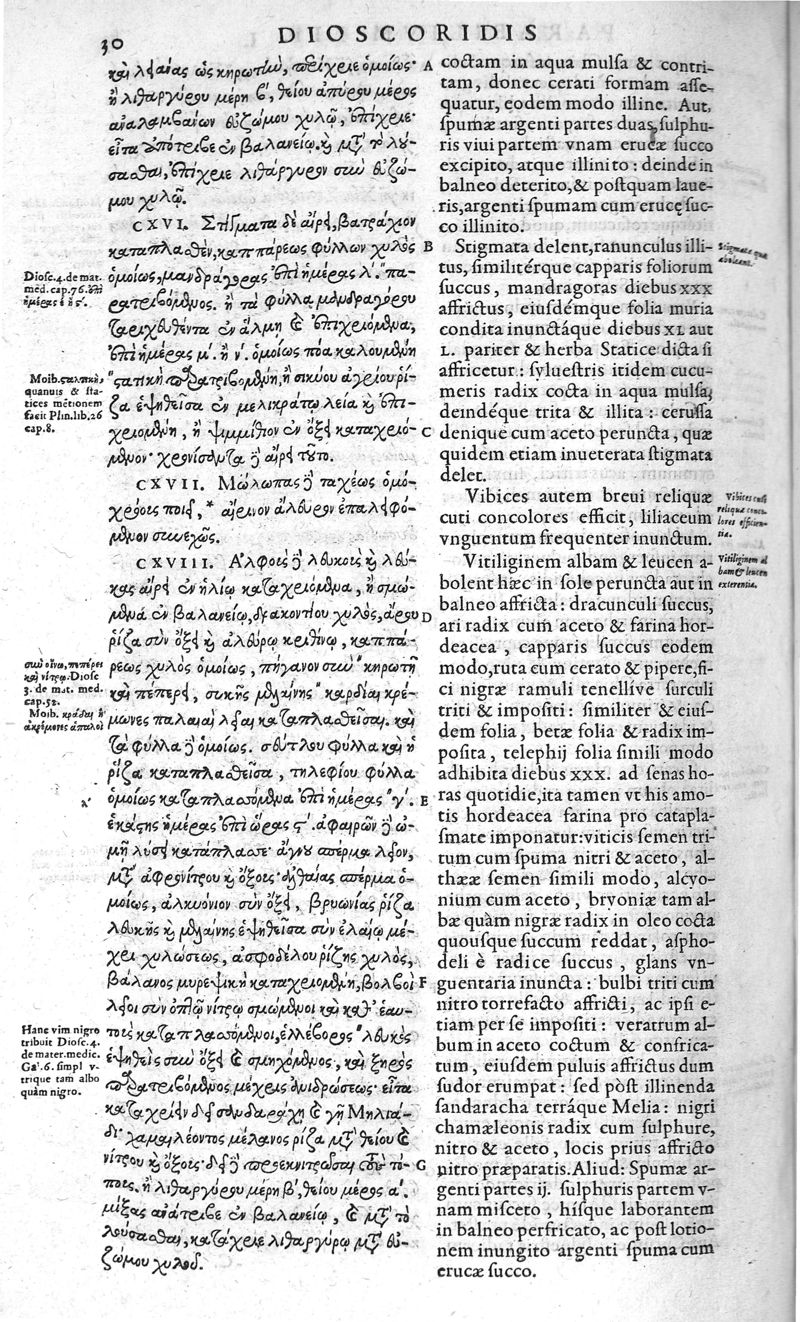 30
DIOSCORIDIS
καὶ λείας ὡς κηρωτὴν, περίχριε ὁμοίως·
ἢ λιθαργύρου μέρη β', θείου ἀπύρου μέρος
ἀναλαμβάνων εὐζώμου χυλῷ, ἐπίχριε·
εἶτα ἀπότριβε ἐν βαλανείῳ. καὶ μετὰ τὸ λού-
σασθαι, ἐπίχριε λιθάργυρον σὺν εὐζώ-
μου χυλῷ.
CXVI. Στίγματα δὲ αἴρει, βατράχιον
καταπλασθὲν, καππάρεως φύλλων χυλὸς
ὁμοίως, μανδραγόρας ἐπὶ ἡμέρας λ'. πα-
ρατριβόμενος. ἢ τὰ φύλλα μανδραγόρου
ταριχευθέντα ἐν ἅλμῃ καὶ ἐπιχριόμενα,
ἐπὶ ἡμέρας μ'. ἢ ν'. ὁμοίως πόα καλουμένη
"στατικὴ παρατριβομένη, ἢ σικύου ἀγρίου ῥί-
ζα ἑψηθεῖσα ἐν μελικράτῳ λεία καὶ ἐπι-
χριομένη, ἢ ψιμμίθιον ἐν ὄξει καταχριό-
μενον· χρονίσαντα δὲ αἴρει τοῦτο.
CXVII. Μώλωπας δὲ ταχέως ὁμο-
χρόους ποιεῖ, * αἴρινον ἄλευρον ἐπαλειφό-
μενον συνεχῶς.
CXVIII. Ἀλφοὺς δὲ λευκοὺς καὶ λεύ-
κας αἴρει ἐν ἡλίῳ καταχριόμενα, ἢ σμώ-
μενα ἐν βαλανείῳ, δρακοντίου χυλὸς, ἄρου
ῥίζα σὺν ὄξει καὶ ἀλεύρῳ κριθίνῳ, καππά-
ρεως χυλὸς ὁμοίως, πήγανον σὺν "κηρωτῇ
καὶ πεπέρει, συκῆς μελαίνης "καρδίαι κρέ-
μωνες παλαιαὶ λεῖαι καταπλασθεῖσαι. καὶ
τὰ φύλλα δὲ ὁμοίως. σεύτλου φύλλα καὶ ἡ
ῥίζα καταπλασθεῖσα, τηλεφίου φύλλα
ὁμοίως καταπλασσόμενα ἐπὶ ἡμέρας "γ'.
ἑκάστης ἡμέρας ἐπὶ ὥρας ϛ'. ἀφαιρῶν δὲ ὠ-
μῇ λύσει κατάπλασσε· ἄγνου σπέρμα λεῖον,
μετὰ ἀφρονίτρου καὶ ὄξους· ἀλθαίας σπέρμα ὁ-
μοίως, ἀλκυόνιον σὺν ὄξει, βρυωνίας ῥίζα
λευκῆς καὶ μελαίνης ἑψηθεῖσα σὺν ἐλαίῳ μέ-
χρι χυλώσεως, ἀσφοδέλου ῥίζης χυλὸς,
βάλανος μυρεψικὴ καταχριομένη, βολβοὶ
λεῖοι σὺν ὀπτῷ νίτρῳ σμώμενοι καὶ καθ' ἑαυ-
τοὺς καταπλασσόμενοι, ἐλλέβορος "λευκὸς
ἑψηθεὶς σὺν ὄξει καὶ σμηχόμενος, καὶ ξηρὸς
παρατριβόμενος μέχρις ἀνιδρώσεως· εἶτα
καταχρίειν δεῖ σανδαράχῃ καὶ γῇ Μηλιά-
δι· χαμαιλέοντος μέλανος ῥίζα μετὰ θείου καὶ
νίτρου καὶ ὄξους· δεῖ δὲ προεκνιτρῶσαι τὸν τό-
πους. ἢ λιθαργύρου μέρη β'. θείου μέρος α'.
μίξας ἀνάτριβε ἐν βαλανείῳ, καὶ μετὰ τὸ
λούσασθαι, κατάχριε λιθαργύρῳ μετὰ εὐ-
ζώμου χυλοῦ.
Diosc. 4. de mat.
med. cap. 76. ἐπὶ
ἡμέρας ε ἢ ϛ'.
Moib. σταλτικὴ,
quanuis & sta-
tices mētionem
facit Plin. lib. 26
cap. 8.
σὺν οἴνῳ, πεπέρει
καὶ νίτρῳ. Diosc
3. de mat. med.
cap. 52.
Moib. κράδαι ἢ
ἀκρέμονες ἁπαλοὶ
λ'
Hanc vim nigro
tribuit Diosc. 4.
de mater. medic.
Gal. 6. simpl v-
trique tam albo
quàm nigro.
A
B
C
D
E
F
G
coctam in aqua mulsa & contri-
tam, donec cerati formam asse-
quatur, eodem modo illine. Aut,
spumæ argenti partes duas, sulphu-
ris viui partem vnam erucæ succo
excipito, atque illinito: deinde in
balneo deterito, & postquam laue-
ris, argenti spumam cum erucę suc-
co illinito.
Stigmata delent, ranunculus illi-
tus, similitérque capparis foliorum
succus, mandragoras diebus XXX
affrictus, eiusdémque folia muria
condita inunctáque diebus XL aut
L. pariter & herba Statice dicta si
affricetur: syluestris itidem cucu-
meris radix cocta in aqua mulsa,
deindéque trita & illita: cerussa
denique cum aceto peruncta, quæ
quidem etiam inueterata stigmata
delet.
Vibices autem breui reliquæ
cuti concolores efficit, liliaceum
vnguentum frequenter inunctum.
Vitiliginem albam & leucen a-
bolent hæc in sole peruncta aut in
balneo affricta: dracunculi succus,
ari radix cum aceto & farina hor-
deacea, capparis succus eodem
modo, ruta cum cerato & pipere, fi-
ci nigræ ramuli tenellíve surculi
triti & impositi: similiter & eius-
dem folia, betæ folia & radix im-
posita, telephij folia simili modo
adhibita diebus XXX. ad senas ho-
ras quotidie, ita tamen vt his amo-
tis hordeacea farina pro catapla-
smate imponatur: viticis semen tri-
tum cum spuma nitri & aceto, al-
thææ semen simili modo, alcyo-
nium cum aceto, bryoniæ tam al-
bæ quàm nigræ radix in oleo cocta
quousque succum reddat, aspho-
deli è radice succus, glans vn-
guentaria inuncta: bulbi triti cum
nitro torrefacto affricti, ac ipsi e-
tiam per se impositi: veratrum al-
bum in aceto coctum & confrica-
tum, eiusdem puluis affrictus dum
sudor erumpat: sed pòst illinenda
sandaracha terráque Melia: nigri
chamæleonis radix cum sulphure,
nitro & aceto, locis prius affricto
nitro præparatis. Aliud: Spumæ ar-
genti partes ij. sulphuris partem v-
nam misceto, hísque laborantem
in balneo perfricato, ac post lotio-
nem inungito argenti spuma cum
erucæ succo.
Stigmata quæ
aboleant.
Vibices cuti
reliquæ conco-
lores efficien-
tia.
Vitiliginem al
bam & leucen
exterentia.